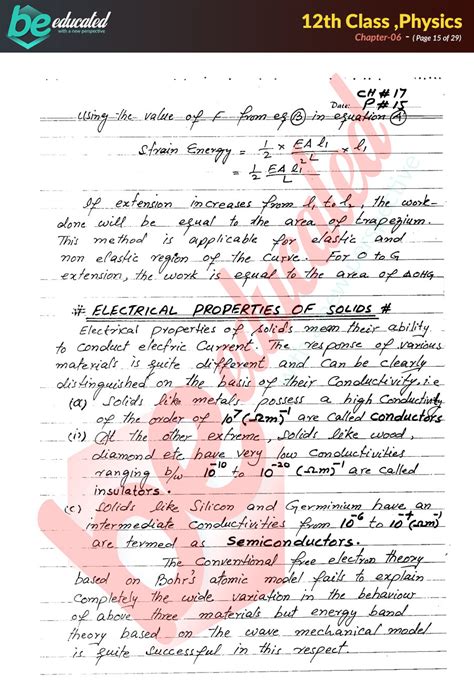 be educated
with a new perspective
12th Class ,Physics
Chapter-06 - ( Page 15 of 29)
CH # 17
Date: P # 15
Using the value of F from eq ③ in equation ④
Strain Energy = 1/2 × EA l₁/L × l₁
= 1/2 EA l₁²/L
If extension increases from l₁ to l₂, the work-
done will be equal to the area of trapezium.
This method is applicable for elastic and
non elastic region of the curve. For O to G
extension, the work is equal to the area of ΔOHG
# ELECTRICAL PROPERTIES OF SOLIDS #
Electrical properties of solids mean their ability
to conduct electric current. The response of various
materials is quite different and can be clearly
distinguished on the basis of their Conductivity. i.e
(a) Solids like metals possess a high Conductivity
of the order of 10⁷ (Ωm)⁻¹ are called conductors
(ii) At the other extreme, solids like wood,
diamond etc have very low Conductivities
ranging b/w 10⁻¹⁰ to 10⁻²⁰ (Ωm)⁻¹ are called
insulators.
(c) Solids like Silicon and Germinium have an
intermediate Conductivities from 10⁻⁶ to 10⁻⁴ (Ωm)⁻¹
are termed as Semiconductors.
The Conventional free electron theory
based on Bohr's atomic model fails to explain
completely the wide variation in the behaviour
of above three materials but energy band
theory based on the wave mechanical model
is quite successful in this respect.
be educated